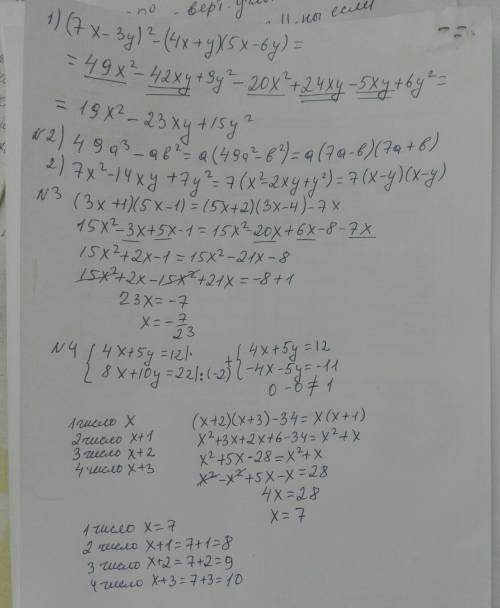 по верт. угл
II-ны если
1) (7x-3y)²-(4x+y)(5x-6y)=
=49x²-42xy+9y²-20x²+24xy-5xy+6y²=
=19x²-23xy+15y²
N2) 49a³-ab²=a(49a²-b²)=a(7a-b)(7a+b)
2) 7x²-14xy+7y²=7(x²-2xy+y²)=7(x-y)(x-y)
N3 (3x+1)(5x-1)=(5x+2)(3x-4)-7x
15x²-3x+5x-1=15x²-20x+6x-8-7x
15x²+2x-1=15x²-21x-8
15x²+2x-15x²+21x=-8+1
23x=-7
x=-7/23
N4 { 4x+5y=12|· + { 4x+5y=12
{ 8x+10y=22|:(-2) { -4x-5y=-11
0-0≠1
1 число x (x+2)(x+3)-34=x(x+1)
2 число x+1 x²+3x+2x+6-34=x²+x
3 число x+2 x²+5x-28=x²+x
4 число x+3 x²-x²+5x-x=28
4x=28
x=7
1 число x=7
2 число x+1=7+1=8
3 число x+2=7+2=9
4 число x+3=7+3=10